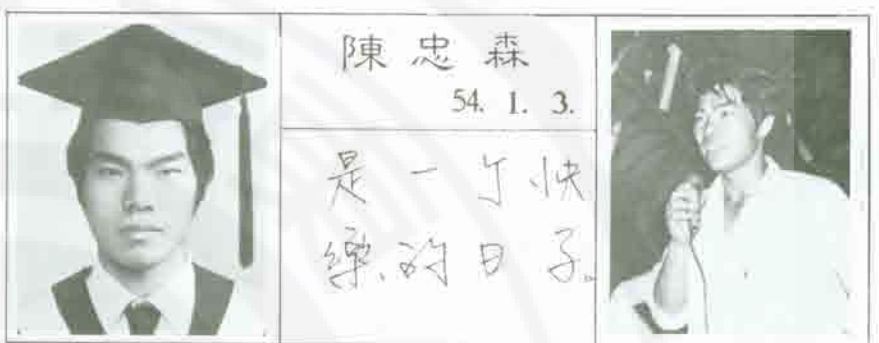 陳忠森
54. 1. 3.
是一个快
樂的日子。